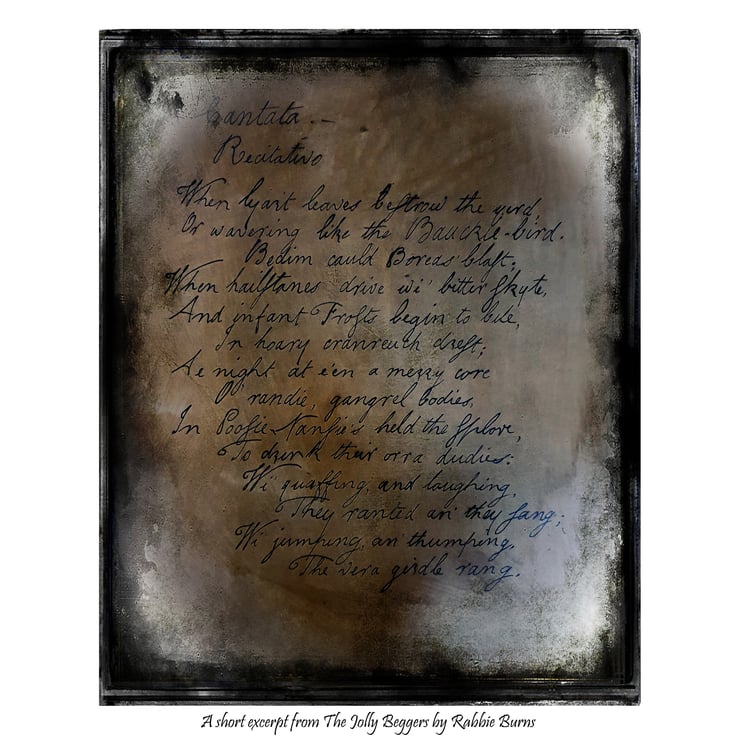 Cantata.—
Recitativo
When lyart leaves beſtrow the yird,
Or wavering like the Bauckie-bird,
Bedim cauld Boreas' blaſt;
When hailſtanes drive wi' bitter ſkyte,
And infant Froſts begin to bite,
In hoary cranreuch dreſt;
Ae night at e'en a merry core
O' randie, gangrel bodies,
In Pooſie-Nanſie's held the ſplore,
To drink their orra dudies:
Wi' quaffing, and laughing,
They ranted an' they ſang;
Wi' jumping, an' thumping,
The vera girdle rang.
A short excerpt from The Jolly Beggers by Rabbie Burns